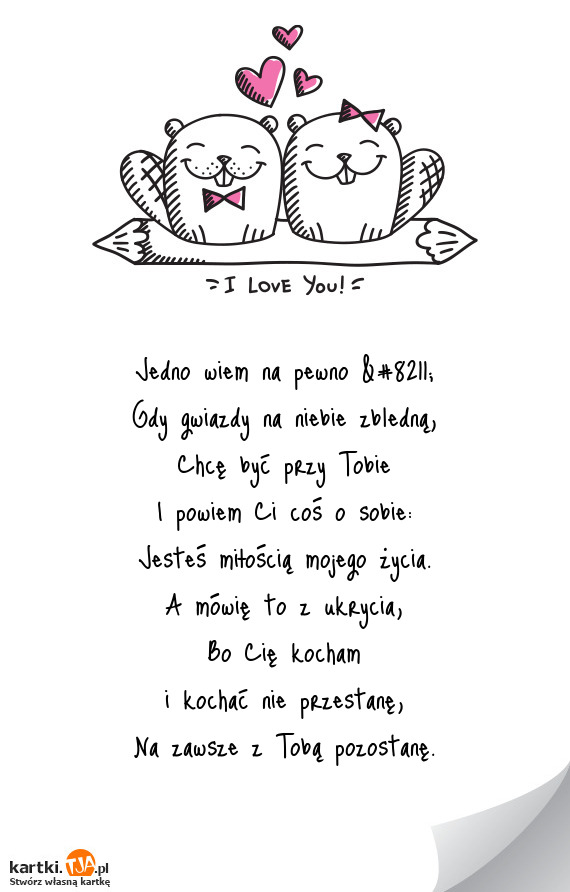 I LOVE YOU!
Jedno wiem na pewno &#8211;
Gdy gwiazdy na niebie zbledną,
Chcę być przy Tobie
I powiem Ci coś o sobie:
Jesteś miłością mojego życia.
A mówię to z ukrycia,
Bo Cię kocham
i kochać nie przestanę,
Na zawsze z Tobą pozostanę.
kartki.TJA.pl
Stwórz własną kartkę